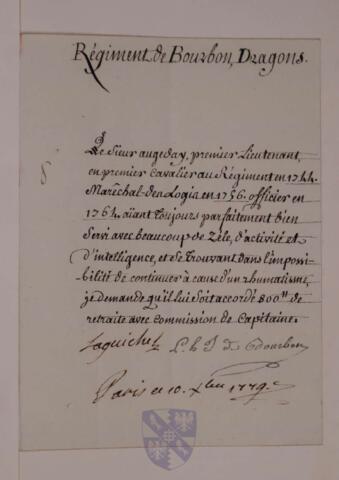 Régiment de Bourbon, Dragons.
Le Sieur augeday, premier Lieutenant,
en premier cavalier au Régiment en 1744
Maréchal-des Logis en 1756. officier en
1764. aïant toujours parfaitement bien
Servi avec beaucoup de Zèle, d'activité et
d'intelligence, et se trouvant dans l'impossi-
bilité de continuer à cause d'un rhumatisme,
je demande qu'il lui soit accordé 800ᵗᵗ de
retraite avec commission de Capitaine.
Laguiche L. h. J. de Bourbon
Paris ce 10. Xbre 1779.